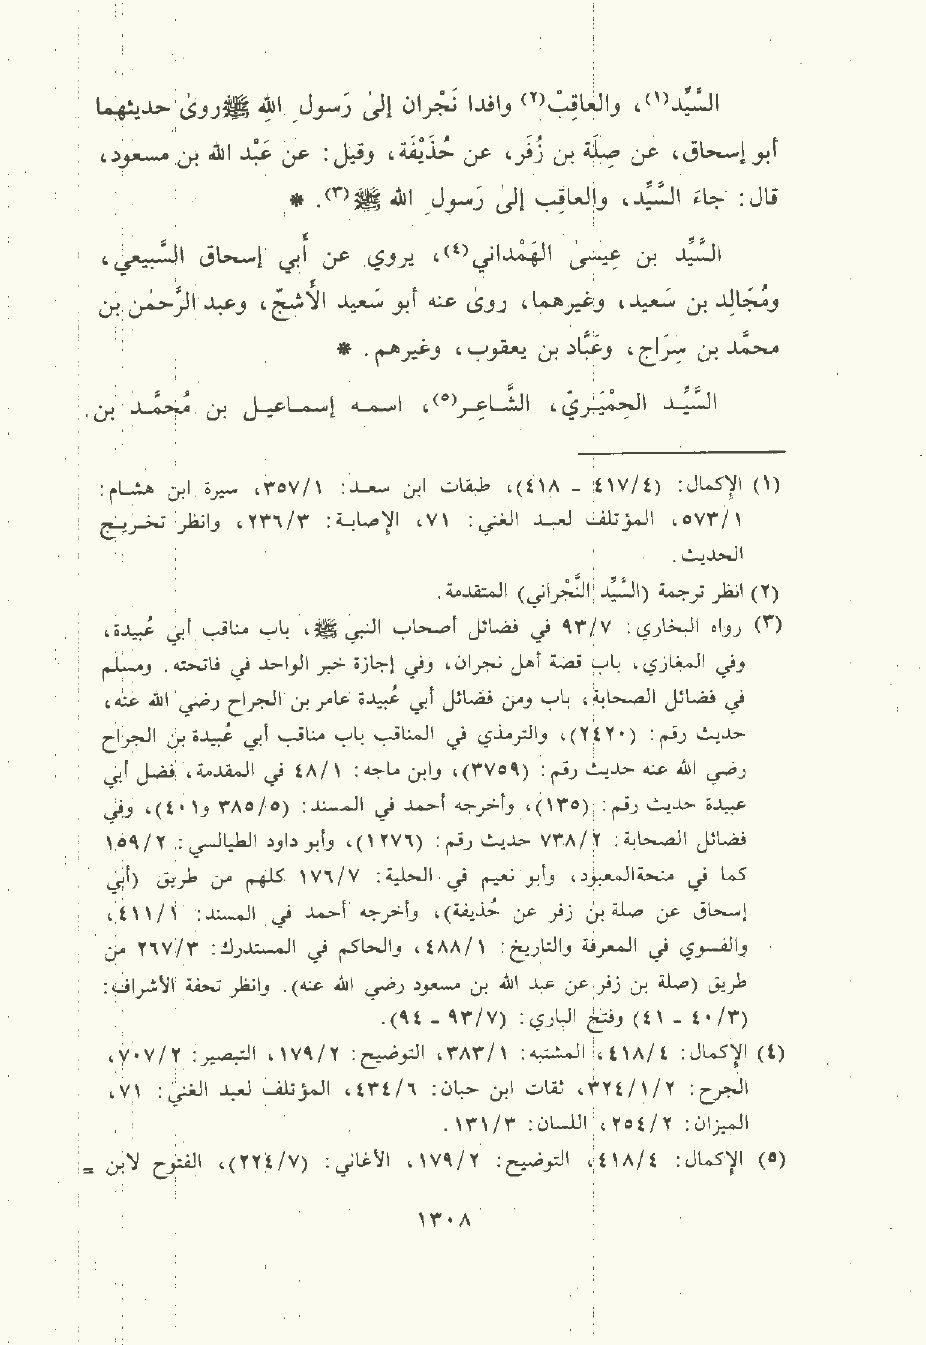 السَّيِّد(١)، والعاقِبْ(٢) وافدا نَجْران إلىٰ رَسولِ الله ﷺ وروىٰ حديثهما
أبو إسحاق، عن صِلَة بن زُفَر، عن حُذَيْفَة، وقيل: عن عَبْد الله بن مسعود،
قال: جاءَ السَّيِّد، والعاقِب إلىٰ رَسولِ الله ﷺ(٣). *
السَّيِّد بن عِيسىٰ الهَمْداني(٤)، يروي عن أَبي إسحاق السَّبيعي،
ومُجَالِد بن سَعيد، وغيرهما، روىٰ عنه أبو سَعيد الأَشجّ، وعبد الرَّحمٰن بن
محمَّد بن سِرَاج، وعَبَّاد بن يعقوب، وغيرهم. *
السَّيِّد الحِمْيَرِيّ، الشَّاعِر(٥)، اسمه إسماعيل بن مُحمَّد بن.
(١) الإكمال: (٤/٤١٧ - ٤١٨)، طبقات ابن سعد: ١/٣٥٧، سيرة ابن هشام:
١/٥٧٣، المؤتلف لعبد الغني: ٧١، الإصابة: ٣/٢٣٦، وانظر تخريج
الحديث.
(٢) انظر ترجمة (السَّيِّد النَّجْراني) المتقدمة.
(٣) رواه البخاري: ٧/٩٣ في فضائل أصحاب النبي ﷺ، باب مناقب أبي عُبيدة،
وفي المغازي، باب قصة أهل نجران، وفي إجازة خبر الواحد في فاتحته. ومسلم
في فضائل الصحابة، باب ومن فضائل أبي عُبيدة عامر بن الجراح رضي الله عنه،
حديث رقم: (٢٤٢٠)، والترمذي في المناقب باب مناقب أبي عُبيدة بن الجراح
رضي الله عنه حديث رقم: (٣٧٥٩)، وابن ماجه: ١/٤٨ في المقدمة، فضل أبي
عبيدة حديث رقم: (١٣٥)، وأخرجه أحمد في المسند: (٥/٣٨٥ و٤٠١)، وفي
فضائل الصحابة: ٢/٧٣٨ حديث رقم: (١٢٧٦)، وأبو داود الطيالسي: ٢/١٥٩
كما في منحةالمعبود، وأبو نعيم في الحلية: ٧/١٧٦ كلهم من طريق (أبي
إسحاق عن صلة بن زفر عن حُذيفة)، وأخرجه أحمد في المسند: ١/٤١١،
والفسوي في المعرفة والتاريخ: ١/٤٨٨، والحاكم في المستدرك: ٣/٢٦٧ من
طريق (صلة بن زفر عن عبد الله بن مسعود رضي الله عنه). وانظر تحفة الأشراف:
(٣/٤٠ - ٤١) وفتح الباري: (٧/٩٣ - ٩٤).
(٤) الإكمال: ٤/٤١٨، المشتبه: ١/٣٨٣، التوضيح: ٢/١٧٩، التبصير: ٢/٧٠٧،
الجرح: ٢/١/٣٢٤، ثقات ابن حبان: ٦/٤٣٤، المؤتلف لعبد الغني: ٧١،
الميزان: ٢/٢٥٤، اللسان: ٣/١٣١.
(٥) الإكمال: ٤/٤١٨، التوضيح: ٢/١٧٩، الأغاني: (٧/٢٢٤)، الفتوح لابن =
١٣٠٨